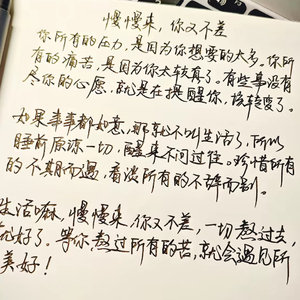 慢慢来，你又不差
你所有的压力，是因为你想要的太多。你所
有的痛苦，是因为你太较真了。有些事没有
尽你的心愿，就是在提醒你，该转变了。
如果事事都如意，那就不叫生活了，所以
睡前原谅一切，醒来不问过往。珍惜所有
的不期而遇，看淡所有的不辞而别。
生活嘛，慢慢来，你又不差，一切熬过去，
就好了。等你熬过所有的苦，就会遇见所
美好！